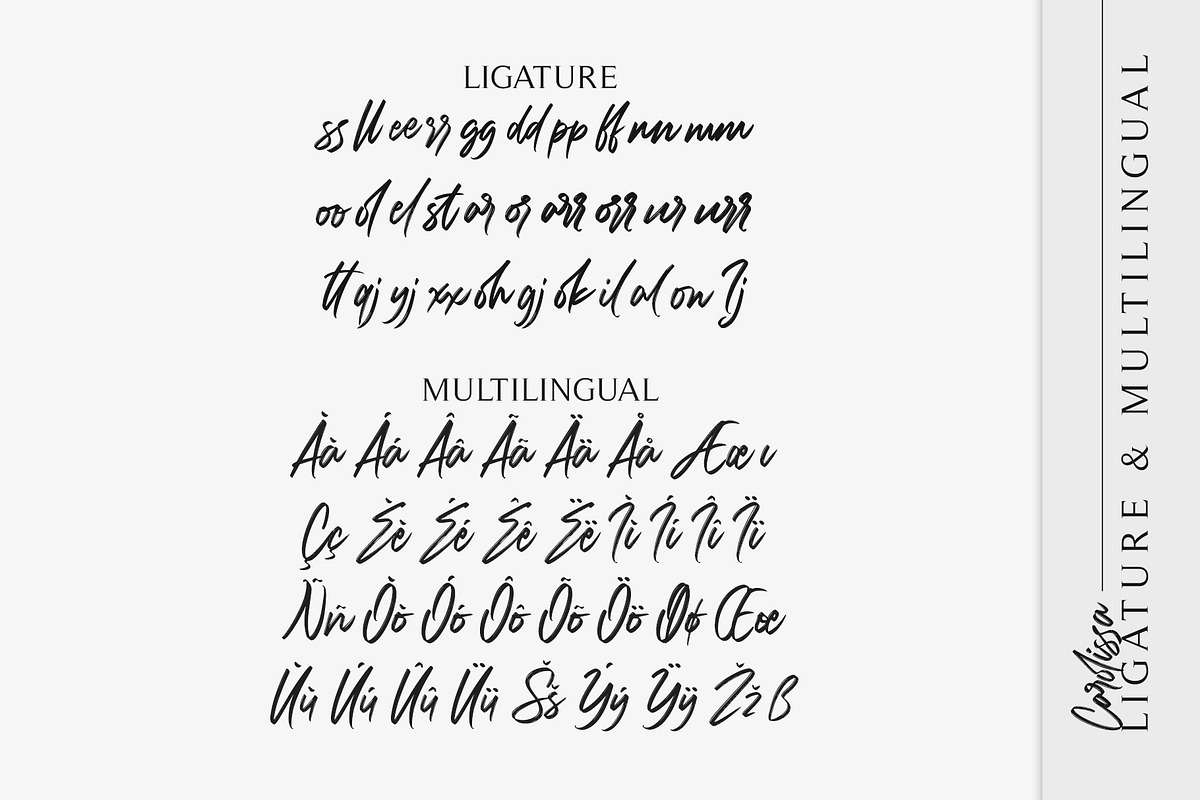 LIGATURE
ss ll ee rr gg dd pp ff nn mm
oo ol el st ar or arr orr ur urr
tt qj yj xx oh gj ok il al on Ij
MULTILINGUAL
Àà Áá Ââ Ãã Ää Åå Ææ ı
Çç Èè Éé Êê Ëë Ìì Íí Îî Ïï
Ññ Òò Óó Ôô Õõ Öö Øø Œœ
Ùù Úú Ûû Üü Šš Ýý Ÿÿ Žž ß
Carolissa
LIGATURE & MULTILINGUAL